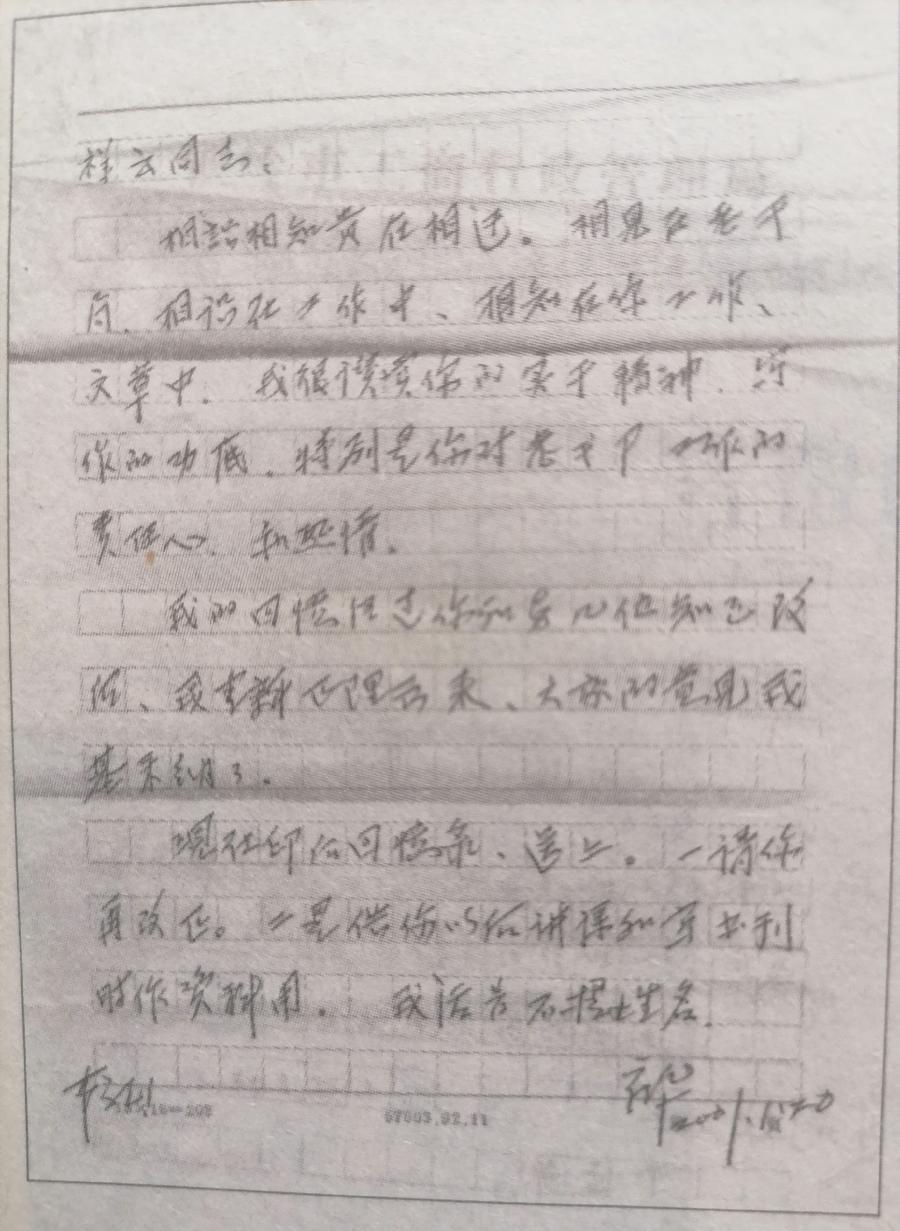 祥云同志：
相识相知贵在相适。相见在老干
局、相识在工作中、相知在你工作、
文章中。我很讚赏你的实干精神、写
作的功底。特别是你对老干部工作的
责任心、和热情。
我的回忆经过你和另几位知己改
后、我重新正理出来、大家的意见我
基本纳了。
现在印作回忆录、送上。一请你
再改正。二是供你以后讲课和写书刊
时作资料用。 我活着不提此生名。
67003.92.11
2001.